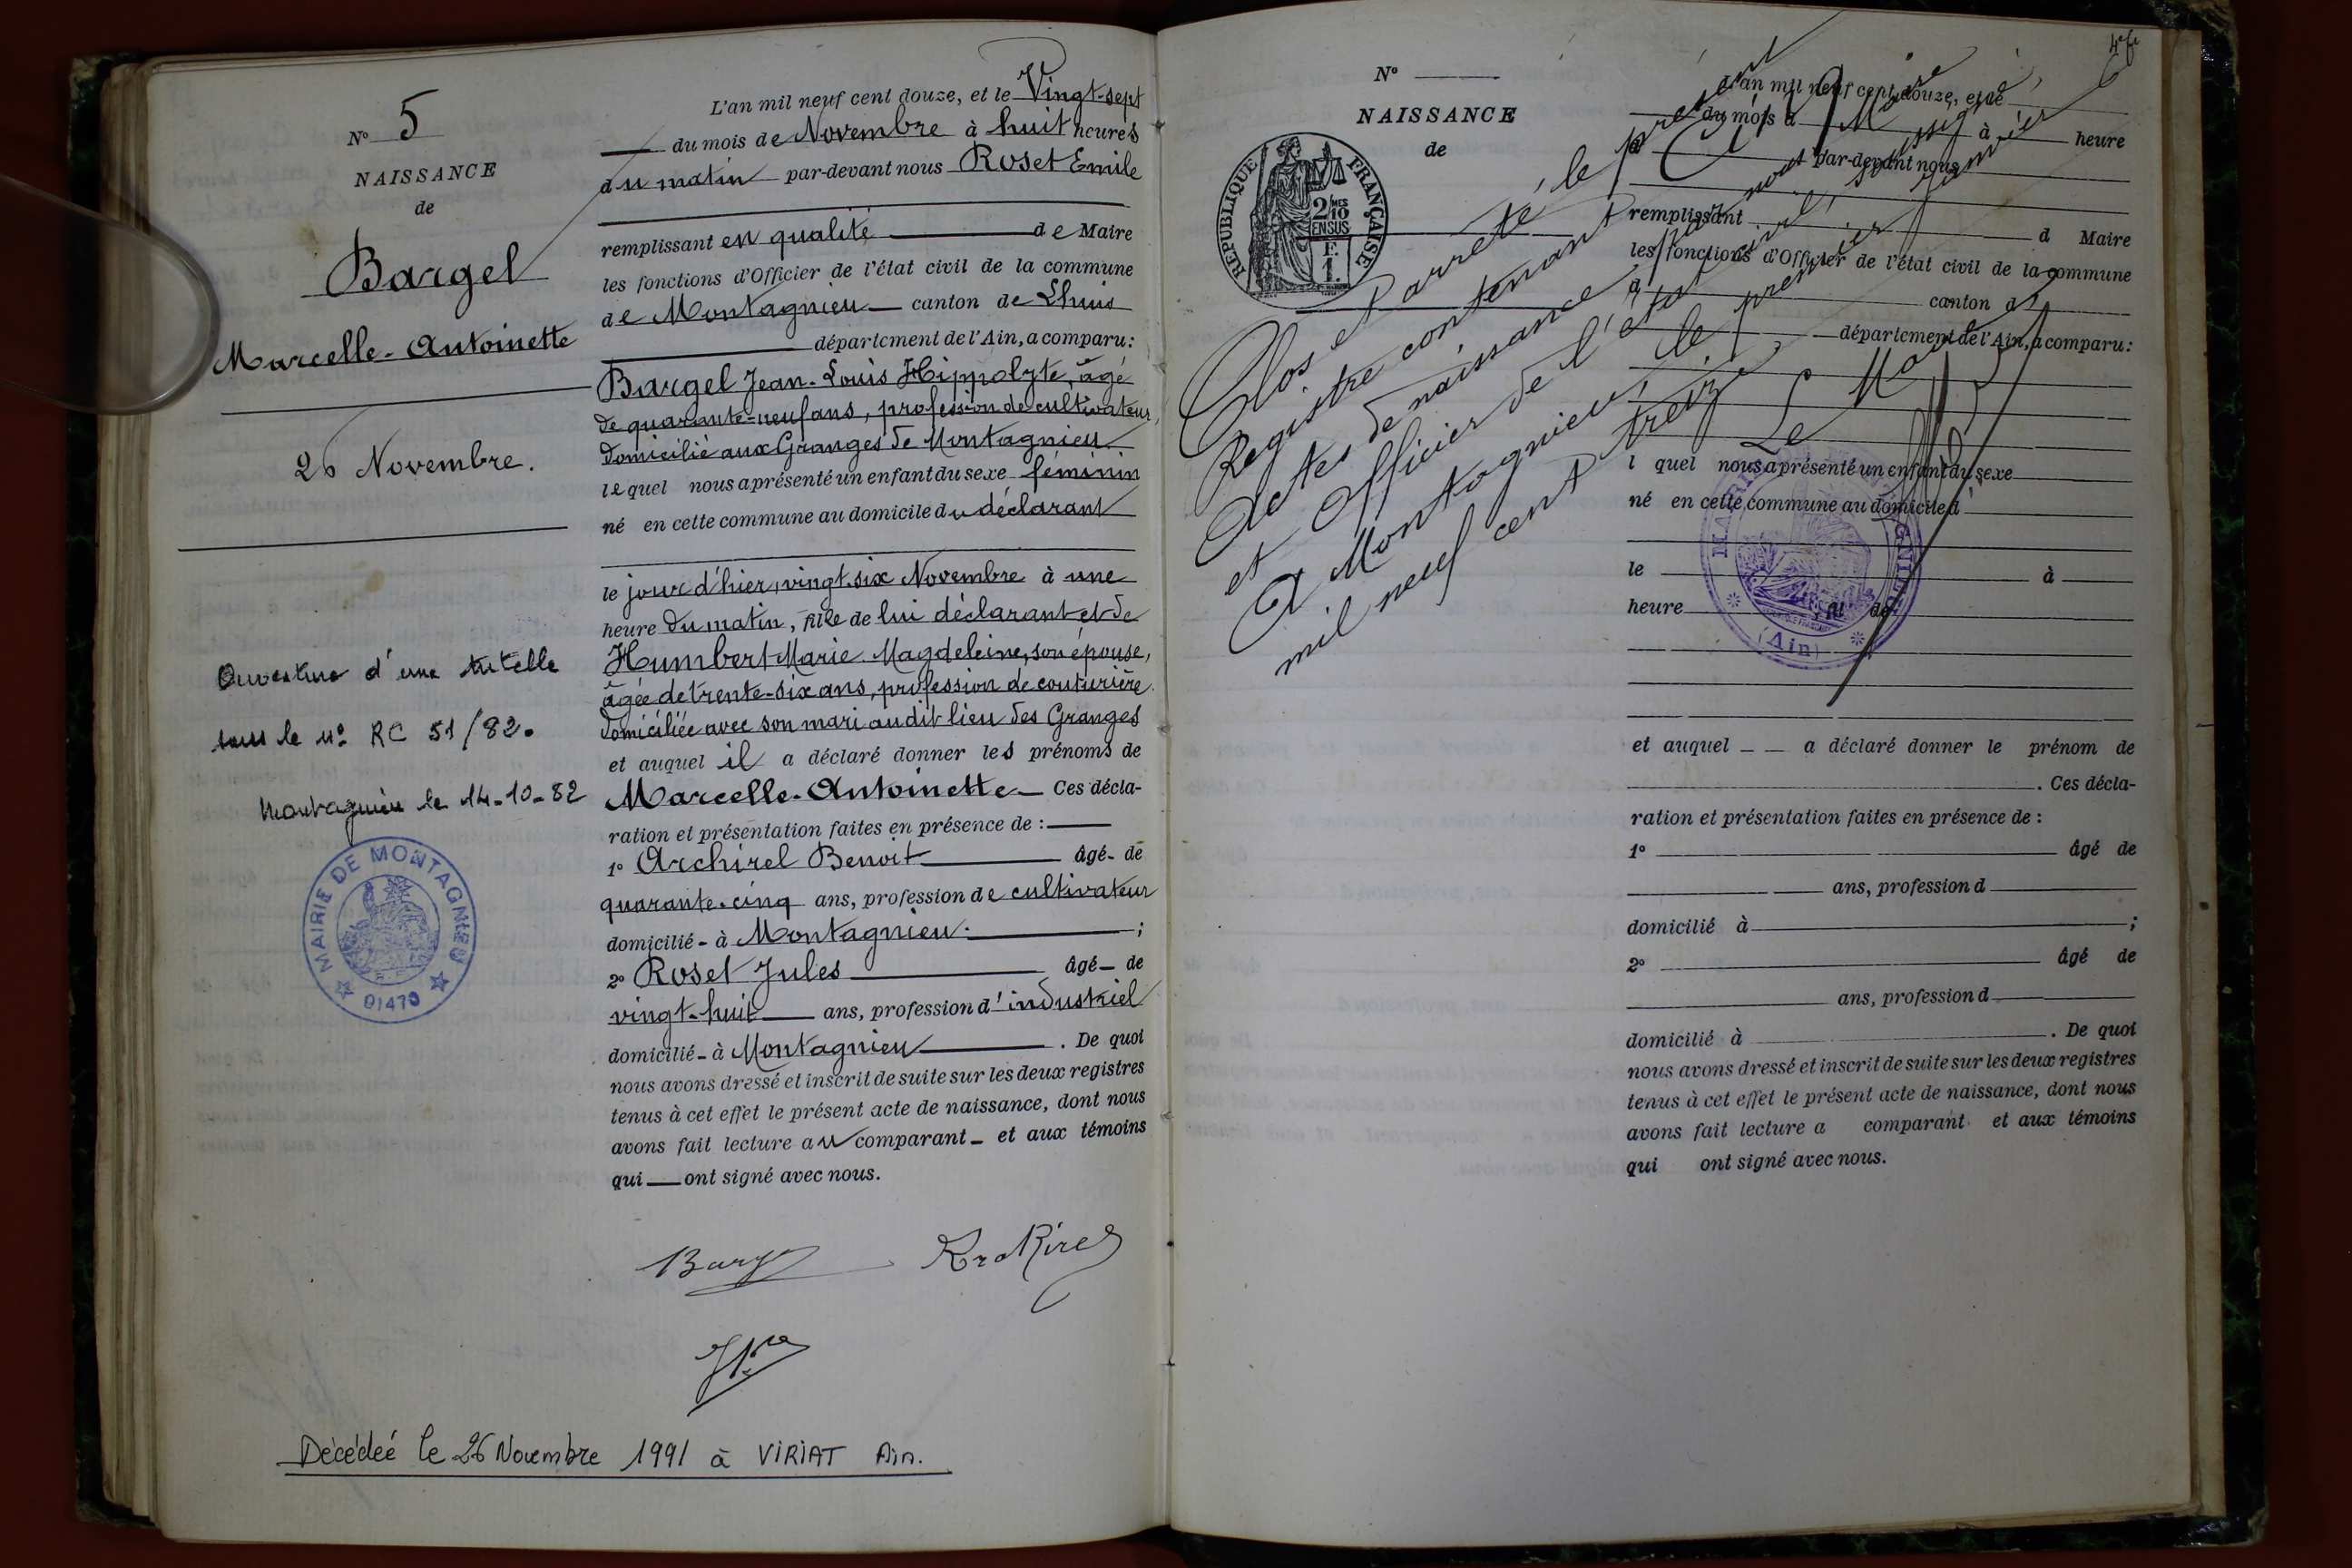 N° 5
NAISSANCE
de
Bargel
Marcelle-Antoinette
26 Novembre.
Ouverture d'une tutelle
sous le n° RC 51/82.
Montagnieu le 14-10-82
MAIRIE DE MONTAGNIEU
01470
L'an mil neuf cent douze, et le Vingt-sept
du mois de Novembre à huit heures
du matin par-devant nous Roset Emile
remplissant en qualité de Maire
les fonctions d'Officier de l'état civil de la commune
de Montagnieu canton de Lhuis
département de l'Ain, a comparu:
Bargel Jean-Louis Hippolyte, âgé
de quarante-neuf ans, profession de cultivateur,
domicilié aux Granges de Montagnieu
lequel nous a présenté un enfant du sexe féminin
né en cette commune au domicile du déclarant
le jour d'hier, vingt-six Novembre à une
heure du matin, fille de lui déclarant et de
Humbert Marie Magdeleine, son épouse,
âgée de trente-six ans, profession de couturière
domiciliée avec son mari audit lieu des Granges
et auquel il a déclaré donner les prénoms de
Marcelle-Antoinette Ces décla-
ration et présentation faites en présence de :
1° Archirel Benoit âgé de
quarante-cinq ans, profession de cultivateur
domicilié à Montagnieu ;
2° Roset Jules âgé de
vingt-huit ans, profession d'industriel
domicilié à Montagnieu . De quoi
nous avons dressé et inscrit de suite sur les deux registres
tenus à cet effet le présent acte de naissance, dont nous
avons fait lecture au comparant et aux témoins
qui ont signé avec nous.
Décédeé le 26 Novembre 1991 à VIRIAT Ain.
N°
NAISSANCE
de
RÉPUBLIQUE FRANÇAISE
2 MES
10
EN SUS
F.
1.
Clos et arrêté le présent
Registre contenant
Actes de naissance par nous Maire
et Officier de l'état civil soussigné,
A Montagnieu, le premier Janvier
mil neuf cent treize
Le Maire
L'an mil neuf cent douze, et le
du mois d à heure
d par-devant nous
remplissant d Maire
les fonctions d'Officier de l'état civil de la commune
d canton d
département de l'Ain, a comparu:
l quel nous a présenté un enfant du sexe
né en cette commune au domicile d
le à
heure fil de
(Ain)
et auquel a déclaré donner le prénom de
. Ces décla-
ration et présentation faites en présence de :
1° âgé de
ans, profession d
domicilié à ;
2° âgé de
ans, profession d
domicilié à . De quoi
nous avons dressé et inscrit de suite sur les deux registres
tenus à cet effet le présent acte de naissance, dont nous
avons fait lecture a comparant et aux témoins
qui ont signé avec nous.